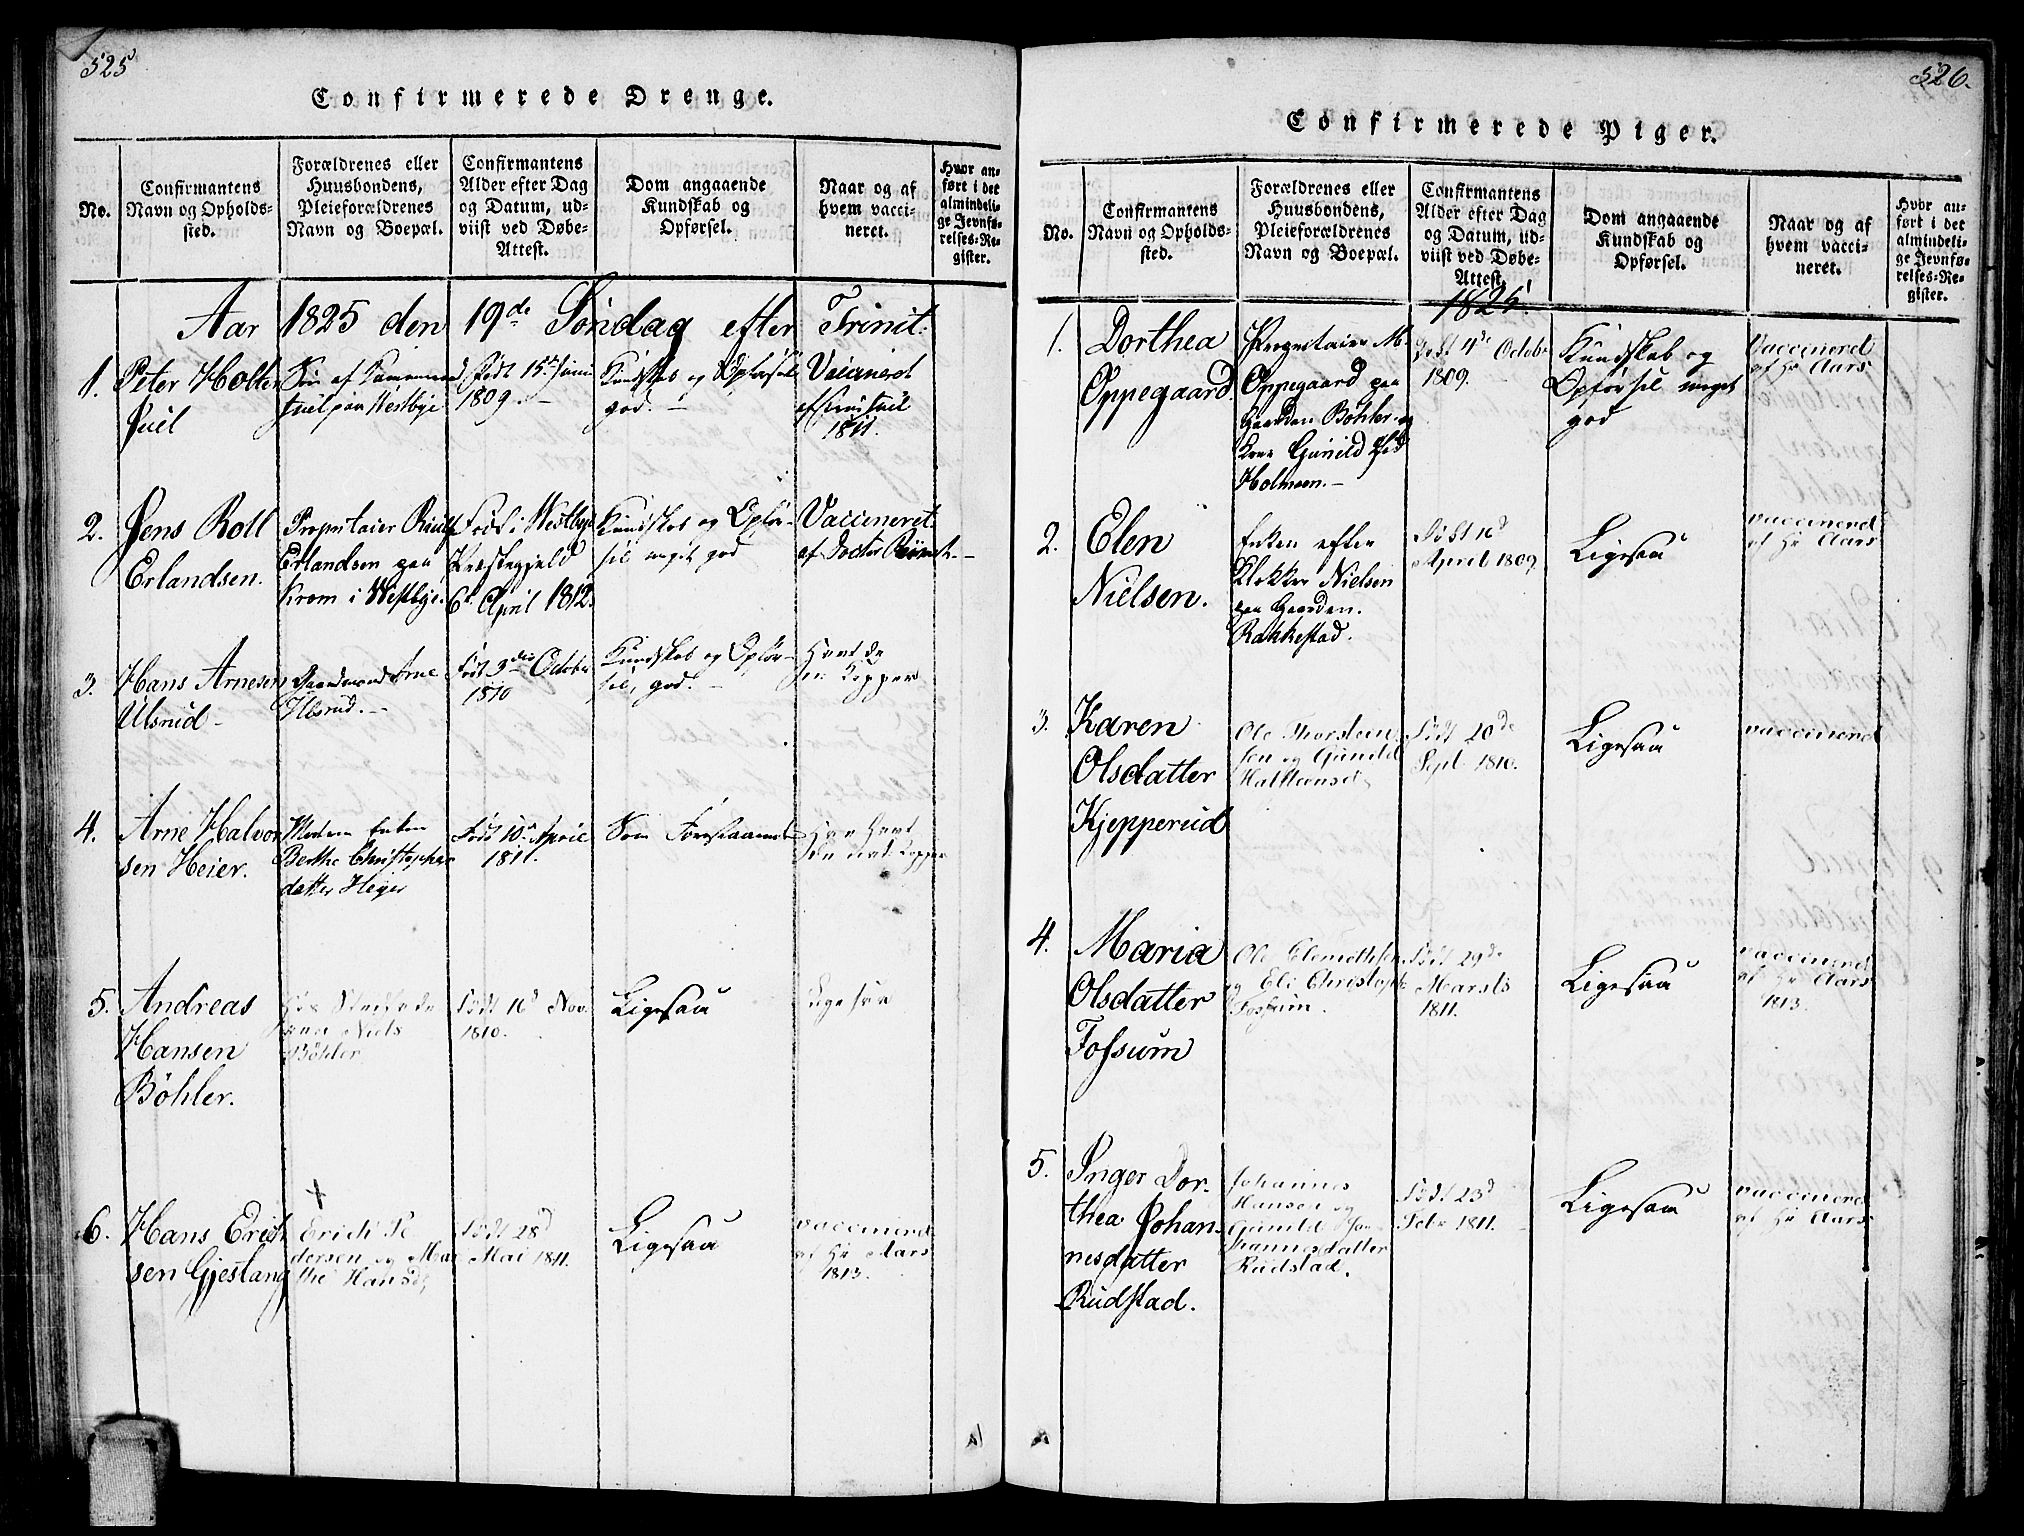 525
Confirmerede Drenge.
No.
Confirmantens
Navn og Opholds-
sted.
Forældrenes eller
Huusbondens,
Pleieforældrenes
Navn og Boepæl.
Confirmantens
Alder efter Dag
og Datum, ud-
viist ved Døbe-
Attest.
Dom angaaende
Kundskab og
Opførsel.
Naar og af
hvem vacci-
neret.
Hvor an-
ført i det
almindeli-
ge Jevnfø-
relses-Re-
gister.
Aar 1825 den 19de Søndag efter Trinit:
1.
Peter Holter
Juel
Søn af
Juel paa Westbye
født 15de Junii
1809.
Kundskab og Opførsel
god.
Vaccineret
af
1811.
2.
Jens Roll
Erlandsen.
Proprietair
Erlandsen paa
Krom i Westbye.
Født i Westbye
Præstegjeld
6te April 1812.
Kundskab og Opfør-
sel meget god
Vaccineret
af Doctor
3.
Hans Arnesen
Ulsrud
Gaardmand Arne
Ulsrud.
Født 3die October
1810
Kundskab og Opfør-
sel, god.
Havt de
Kopper
4.
Arne Halvor
sen Heier.
Moderen Enken
Berthe Christopher
datter Heyer
Født 10de April
1811.
Som Forestaaende
Har Havt
Kopper
5.
Andreas
Hansen
Böhler.
Niels
Böhler
Født 16d Nov.
1810.
Ligesaa
Ligesaa
6.
Hans Erich
sen Gjeslang
Erich Pe
dersen og Mar
the Hansd
Født 28d
Mai 1811.
Ligesaa
vaccinerd
af Hr Aars
1813.
526.
Confirmerede Piger.
No.
Confirmantens
Navn og Opholds-
sted.
Forældrenes eller
Huusbondens,
Pleieforældrenes
Navn og Boepæl.
Confirmantens
Alder efter Dag
og Datum, ud-
viist ved Døbe-
Attest.
Dom angaaende
Kundskab og
Opførsel.
Naar og af
hvem vacci-
neret.
Hvor an-
ført i det
almindeli-
ge Jevnfø-
relses-Re-
gister.
1825.
1.
Dorthea
Oppegaard
Proprietaire M.
Oppegaard paa
Gaarden Böhler og
Kone Gunild
Holmsen.
Født 4de Octobr
1809.
Kundskab og
Opførsel meget
god
Vaccinerd
af Hr Aars
2.
Elen
Nielsen.
Enken efter
Klokker Nielsen
paa Gaarden.
Rakkestad.
Født 16d
April 1809
Ligesaa
vaccinerd
af Hr Aars
3.
Karen
Olsdatter
Kjepperud
Ole Thorstein
sen og Gunild
Født 20de
Sept. 1810.
Ligesaa
vaccinerd
4.
Maria
Olsdatter
Fossum
Ole Clemethsen
og Eli Christoph
Fossum.
Født 29de
Marsts
1811.
Ligesaa
vaccinerd
af Hr Aars
1813.
5.
Inger Dor-
thea Johan-
nesdatter
Rudstad.
Johannes
Hansen og
Gunild Jo
hannesdatter
Rudstad.
Født 23d
Febr 1811.
Ligesaa
vaccinerd
af Hr Aars